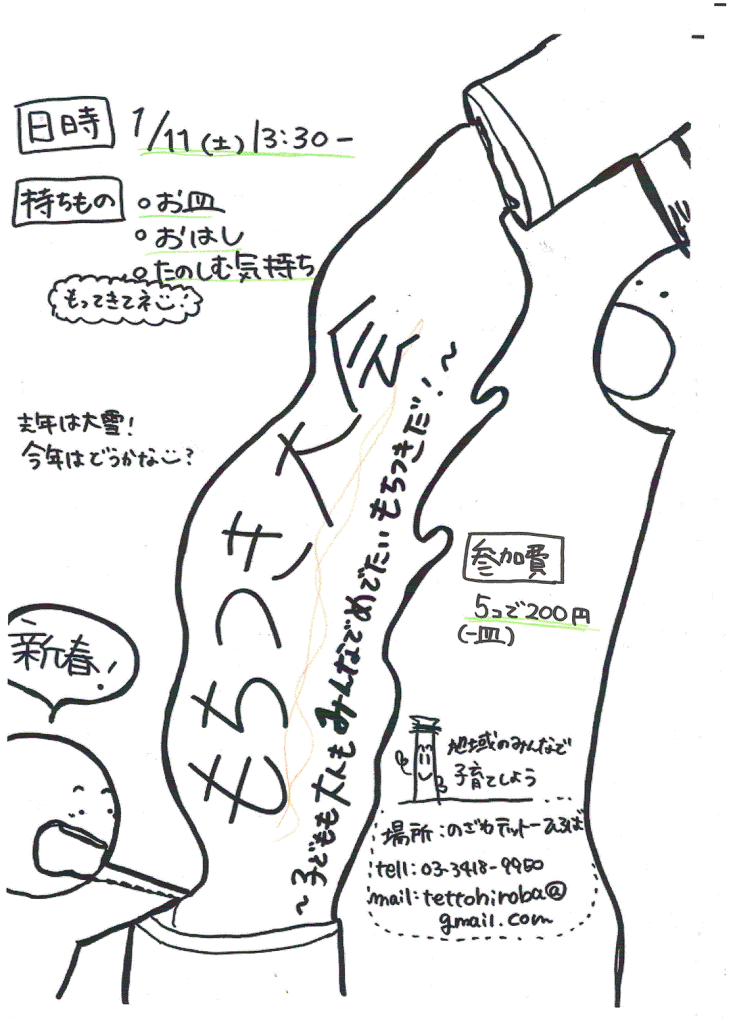 日時 1/11(土)13:30-
持ちもの
○お皿
○おはし
○たのしむ気持ち
もってきてネ
去年は大雪!
今年はどうかな?
新春!
もちつき大会
~子どもも大人もみんなでめでたいもちつきだ!~
参加費
5コで200円
(一皿)
地域のみんなで
子育てしよう
場所:のざわテットーひろば
tell:03-3418-9950
mail:tettohiroba@
gmail.com